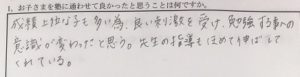 1. お子さまを塾に通わせて良かったと思うことは何ですか。
成績上位な子も多い為、良い刺激を受け、勉強する事への
意識が変わったと思う。先生の指導もほめて伸ばして
くれている。